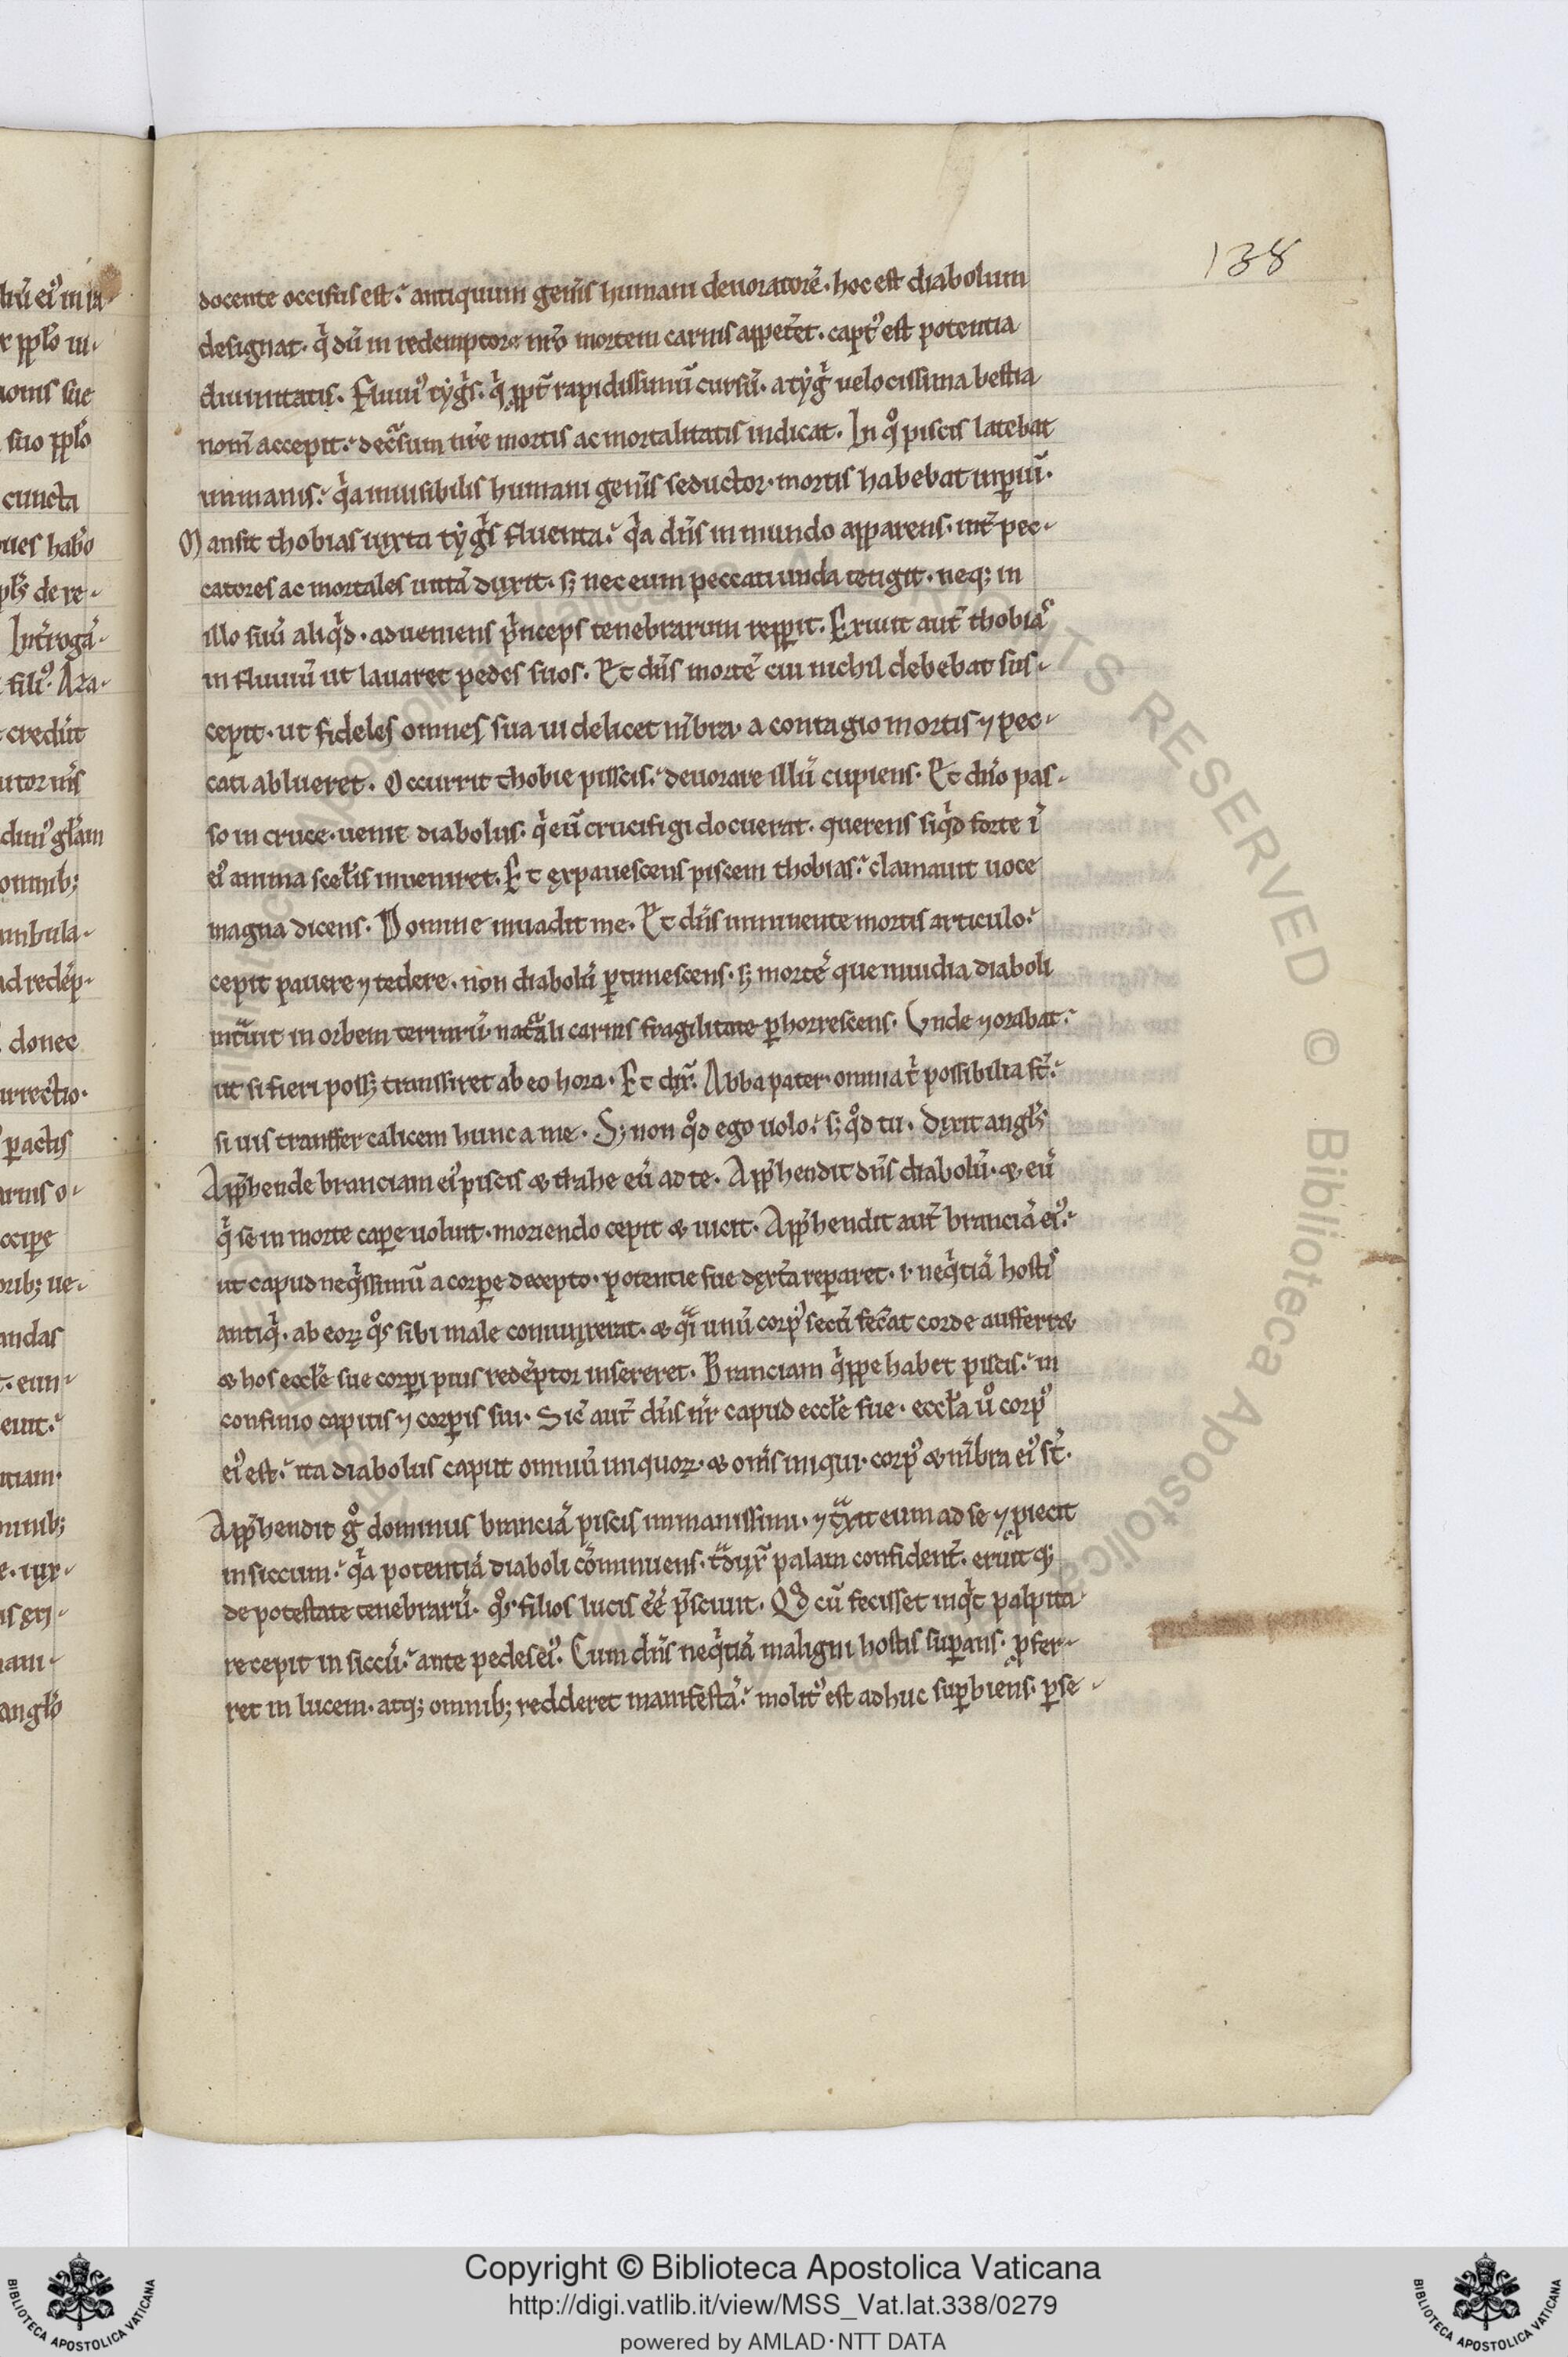 138
docente occisus est. antiquum gen̄is humani deuoratorē. hoc est diabolum
designat. q̇ dū in redemptore nr̄o mortem carnis appeteret. captꝰ est potentia
diuinitatis. Fluuiꝰ tygris. q̇ ꝓpt̄ rapidissimū cursū. a tygri uelocissima bestia
nom̄ accepit. decursum nr̄e mortis ac mortalitatis indicat. In qͦ piscis latebat
inmanis. qͥa inuisibilis humani gen̄is seductor. mortis habebat inꝑiū.
Mansit thobias iuxta tygris fluenta. qͥa dn̄s in mundo apparens. int̄ pec-
catores ac mortales uitā duxit. sꝫ nec eum peccati unda tetigit. neqꝫ in
illo suū aliqͥd. adueniens pͥnceps tenebrarum repperit. Exiuit aut̄ thobias
in fluuiū ut lauaret pedes suos. Et dn̄s mortē cui nichil debebat sus-
cepit. ut fideles omnes sua uidelicet m̄bra. a contagio mortis ⁊ pec-
cati ablueret. Occurrit thobie piscis. deuorare illū cupiens. Et dn̄o pas-
so in cruce. uenit diabolus. qͥ eū crucifigi docuerat. querens siqͥd forte ī
eiꝰ anima scel̄is inueniret. Et expauescens piscem thobias. clamauit uoce
magna dicens. Domine inuadit me. Et dn̄s imminente mortis articulo.
cepit pauere ⁊ tedere. non diabolū ꝑtimescens. sꝫ mortē que inuidia diaboli
intrauit in orbem terrarū. naturali carnis fragilitate ꝑhorrescens. Vnde ⁊ orabat.
ut si fieri possꝫ transsiret ab eo hora. Et dix̄. Abba pater. omnia tͥ possibilia st̄.
si uis transfer calicem hunc a me. Sꝫ non qͦd ego uolo. sꝫ qͦd tu. Dixit angl̄s
App̄hende branciam eiꝰ piscis & trahe eū ad te. App̄hendit dn̄s diabolū. & eū
qͥ se in morte caꝑe uoluit. moriendo cepit & uicit. App̄hendit aut̄ branciā eiꝰ.
ut capud neqͥssimū a corꝑe decepto. potentie sue dextra reparet. i. neqͥtiā hostis
antiqͥ. ab eoꝝ qͦs sibi male coniunxerat. & qͣi unū corpꝰ secū fecerat corde aufferret
& hos eccl̄e sue corꝑi pius redēptor insereret. Branciam qͥppe habet piscis. in
confinio capitis ⁊ corꝑis sui. Sic̄ aut̄ dn̄s nr̄ capud eccl̄e sue. eccl̄a uͦ corpꝰ
eiꝰ est. ita diabolus caput omniū iniquoꝝ. & om̄s iniqui. corpꝰ & m̄bra eiꝰ st̄.
App̄hendit gͦ dominus branciā piscis inmanissimi. ⁊ traxit eum ad se ⁊ ꝓiecit
in siccum. qͥa potentiā diaboli cōminuens. traduxit palam confident̄. eruit qꝫ
de potestate tenebrarū. qͦs filios lucis ēē p̄sciuit. Qd̄ cū fecisset inqͥt palpita-
re cepit in siccū. ante pedes eiꝰ. Cum dn̄s neqͥtiā maligni hostis suꝑans. ꝓfer-
ret in lucem. atqꝫ omnibꝫ redderet manifestā. molitꝰ est adhuc suꝑbiens. ꝑse-
Copyright © Biblioteca Apostolica Vaticana
http://digi.vatlib.it/view/MSS_Vat.lat.338/0279
powered by AMLAD·NTT DATA
BIBLIOTECA APOSTOLICA VATICANA
BIBLIOTECA APOSTOLICA VATICANA